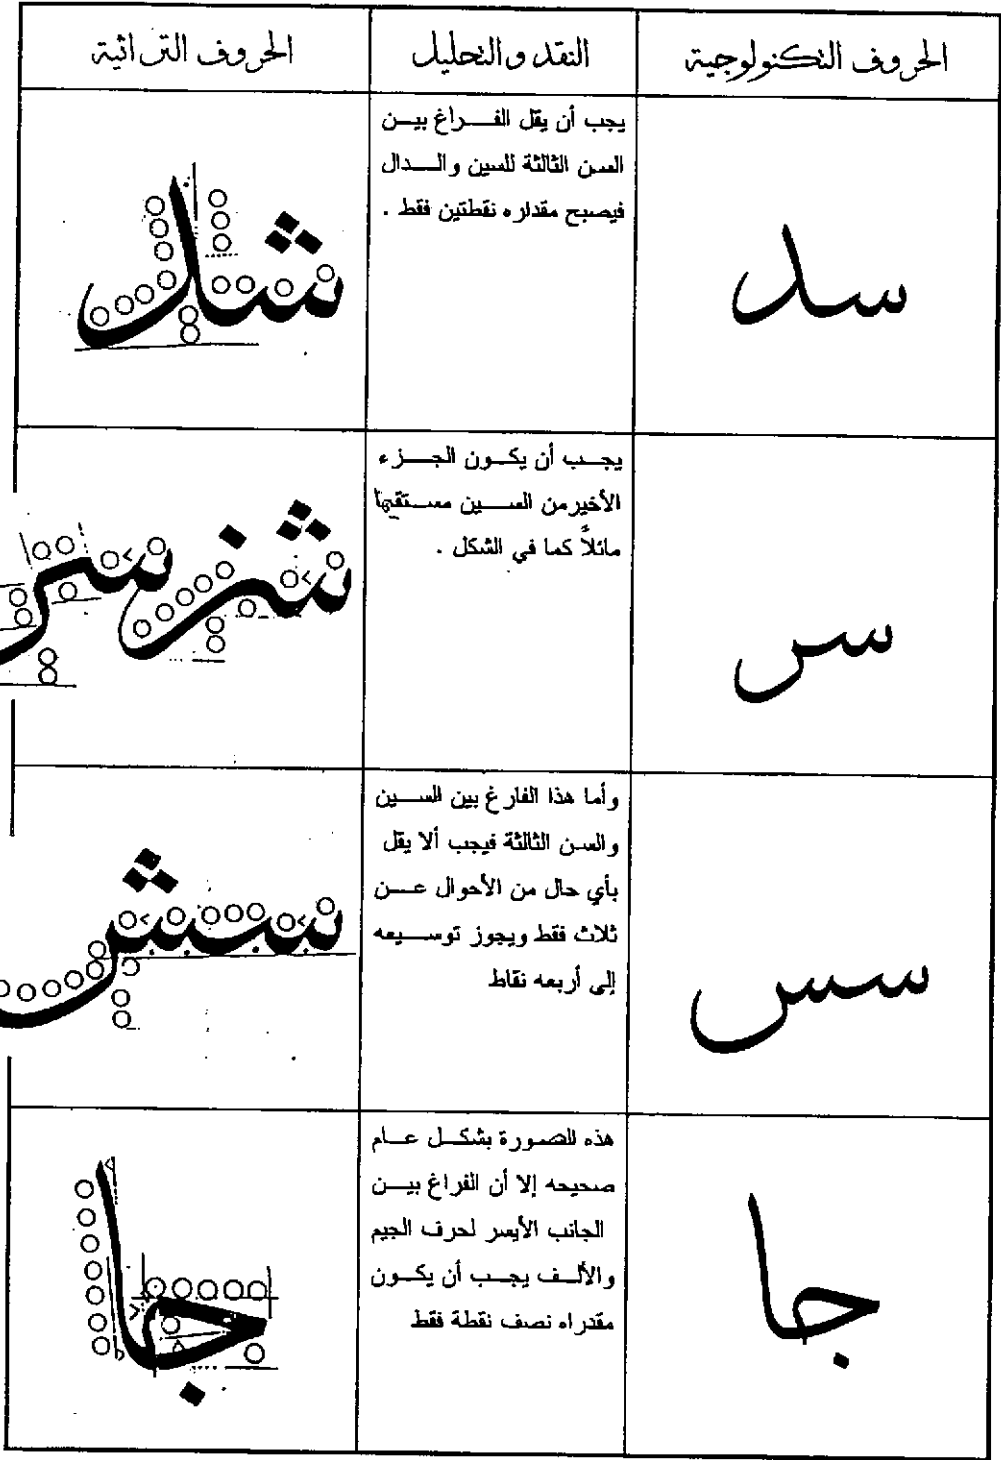 الحروف التكنولوجية
النقد والتحليل
الحروف التراثية
سد
يجب أن يقل الفراغ بين
السن الثالثة للسين والدال
فيصبح مقداره نقطتين فقط .
شد
سر
يجب أن يكون الجزء
الأخير من السين مستقيما
مائلاً كما في الشكل .
شز سر
سس
وأما هذا الفارغ بين السين
والسن الثالثة فيجب ألا يقل
بأي حال من الأحوال عن
ثلاث فقط ويجوز توسيعه
إلى أربعه نقاط
جا
هذه الصورة بشكل عام
صحيحه إلا أن الفراغ بين
الجانب الأيسر لحرف الجيم
والألف يجب أن يكون
مقدراه نصف نقطة فقط
جا